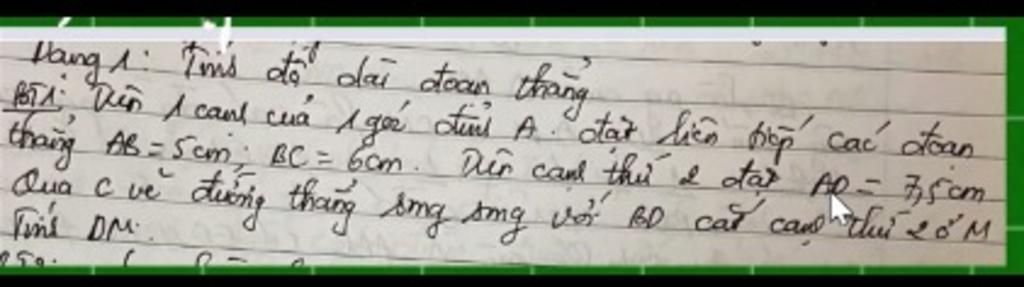 Dạng 1: Tính độ dài đoạn thẳng
BT1: Trên 1 cạnh của 1 góc đỉnh A. đặt liên tiếp các đoạn
thẳng AB = 5cm; BC = 6cm. Trên cạnh thứ 2 đặt AD = 7,5cm
Qua C vẽ đường thẳng song song với BD cắt cạnh thứ 2 ở M
Tính DM.